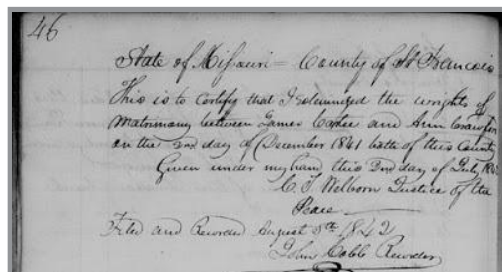 46
State of Missouri = County of St Francois
This is to Certify that I solemnized the wrights of
Matrimony between James and Ann Crawford
on the 2nd day of December 1841 both of this County
Given under my hand this 2nd day of July
C. J. Welborn Justice of the
Peace
Filed and Recorded August 8th 1842
John Cobb Recorder